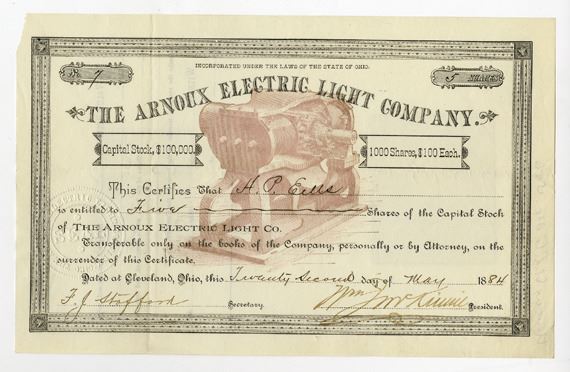 INCORPORATED UNDER THE LAWS OF THE STATE OF OHIO.
No. 7
5 SHARES
THE ARNOUX ELECTRIC LIGHT COMPANY.
Capital Stock, $100,000.
1000 Shares, $100 Each.
This Certifies That H. P. Eells
is entitled to Five Shares of the Capital Stock
of THE ARNOUX ELECTRIC LIGHT CO.
Transferable only on the books of the Company, personally or by Attorney, on the
surrender of this Certificate.
Dated at Cleveland, Ohio, this Twenty Second day of May 1884
F. J. Stafford Secretary. Wm McKinnie President.